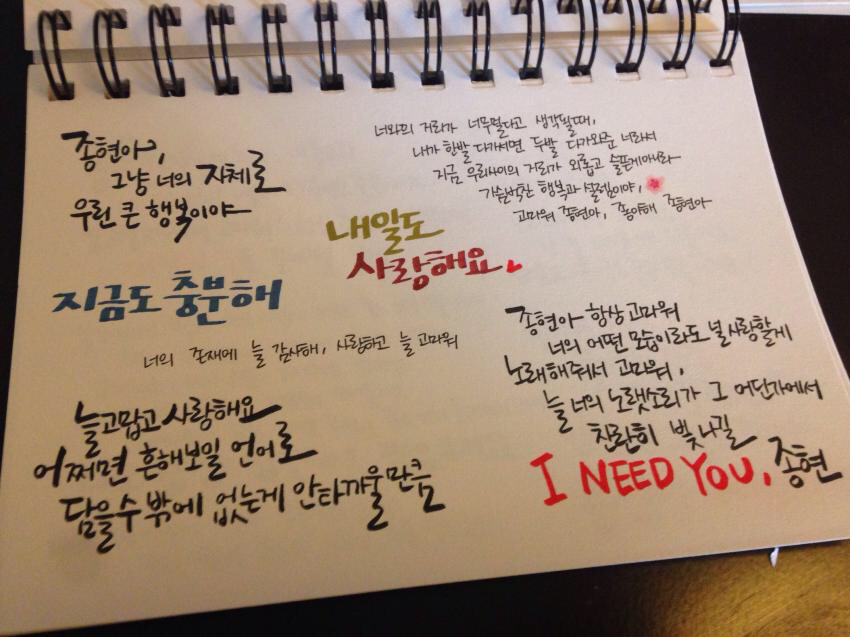 종현아,
그냥 너의 자체로
우린 큰 행복이야
너와의 거리가 너무멀다고 생각될때,
내가 한발 다가서면 두발 다가와준 너라서
지금 우리사이의 거리가 외롭고 슬픈게아니라
가슴벅찬 행복과 설렘이야,
고마워 종현아, 좋아해 종현아
내일도
사랑해요
지금도 충분해
너의 존재에 늘 감사해, 사랑하고 늘 고마워
종현아 항상 고마워
너의 어떤 모습이라도 널 사랑할게
노래해줘서 고마워,
늘 너의 노랫소리가 그 어딘가에서
찬란히 빛나길
I NEED YOU, 종현
늘 고맙고 사랑해요
어쩌면 흔해보일 언어로
담을수 밖에 없는게 안타까울만큼